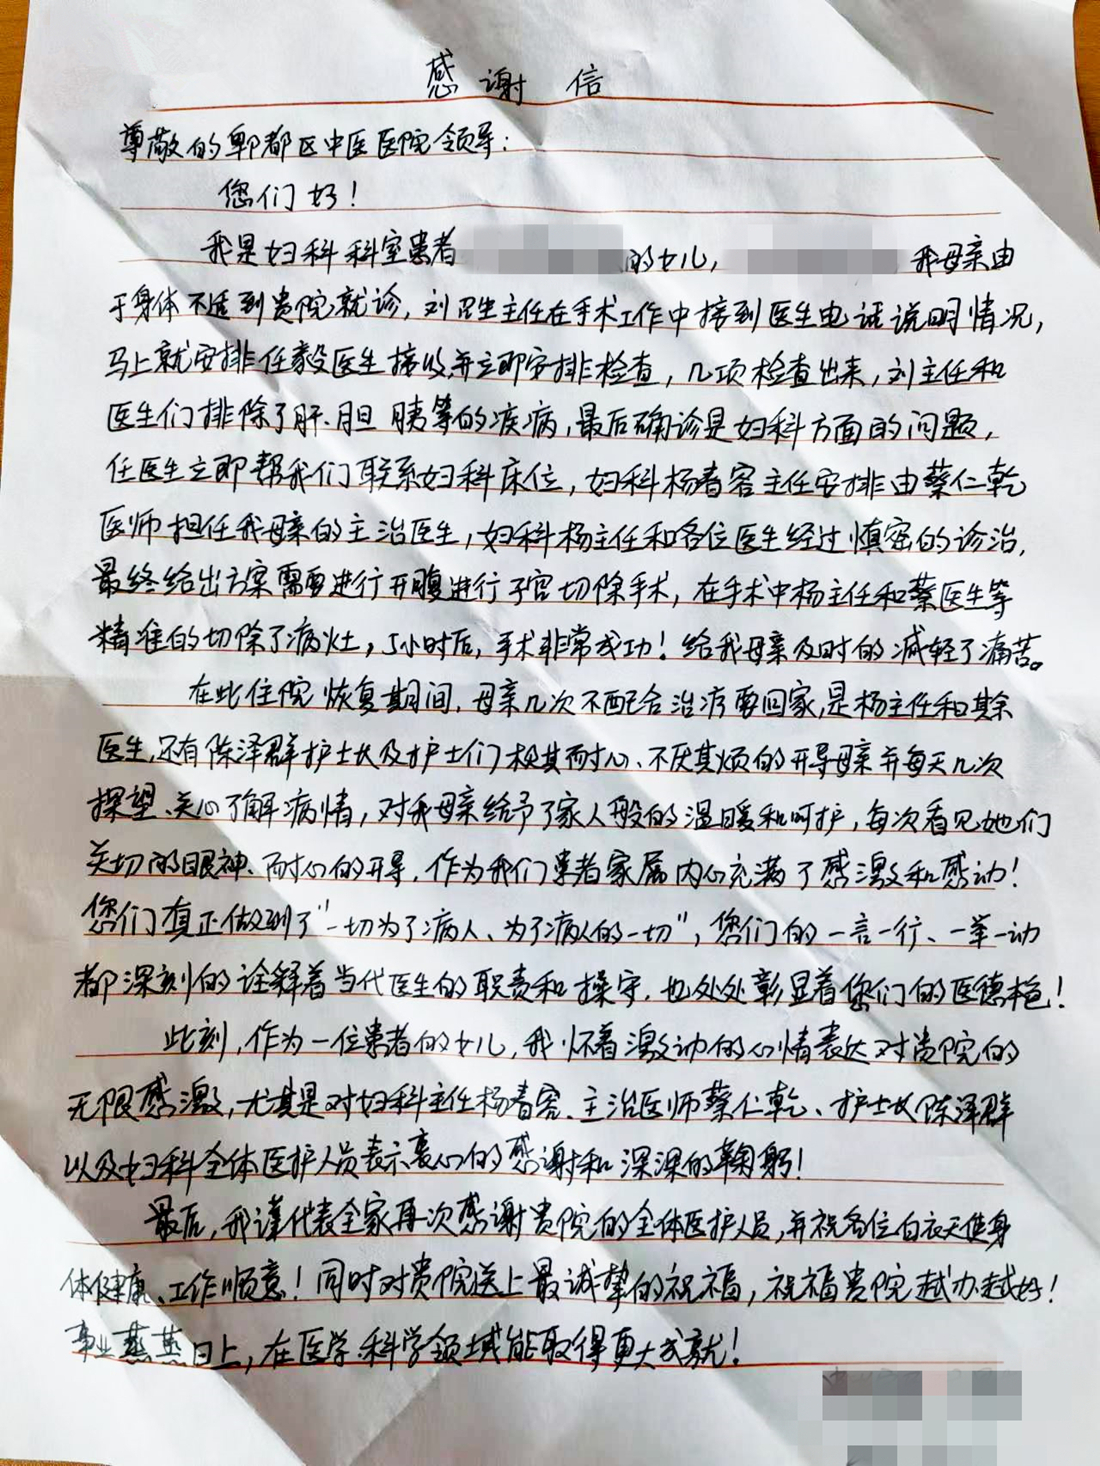 感谢信
尊敬的郫都区中医医院领导：
您们好！
我是妇科科室患者 的女儿， 我母亲由
于身体不适到贵院就诊，刘召生主任在手术工作中接到医生电话说明情况，
马上就安排任毅医生接收，并立即安排检查，几项检查出来，刘主任和
医生们排除了肝、胆 胰等的疾病，最后确诊是妇科方面的问题，
任医生立即帮我们联系妇科床位，妇科杨春容主任安排由蔡仁乾
医师担任我母亲的主治医生，妇科杨主任和各位医生经过慎密的诊治，
最终给出方案需要进行开腹进行子宫切除手术，在手术中杨主任和蔡医生等
精准的切除了病灶，5小时后，手术非常成功！给我母亲及时的减轻了痛苦。
在此住院恢复期间，母亲几次不配合治疗要回家，是杨主任和其余
医生，还有陈泽群护士长及护士们极其耐心、不厌其烦的开导母亲并每天几次
探望、关心了解病情，对我母亲给予了家人般的温暖和呵护，每次看见她们
关切的眼神、耐心的开导，作为我们患者家属内心充满了感激和感动！
您们真正做到了“一切为了病人、为了病人的一切”，您们的一言一行、一举一动
都深刻的诠释着当代医生的职责和操守，也处处彰显着您们的医德
此刻，作为一位患者的女儿，我怀着激动的心情表达对贵院的
无限感激，尤其是对妇科主任杨春容、主治医师蔡仁乾、护士长陈泽群
以及妇科全体医护人员表示衷心的感谢和深深的鞠躬！
最后，我谨代表全家再次感谢贵院的全体医护人员，并祝各位白衣天使身
体健康、工作顺意！同时对贵院送上最诚挚的祝福，祝福贵院越办越好！
事业蒸蒸日上，在医学科学领域能取得更大成就！